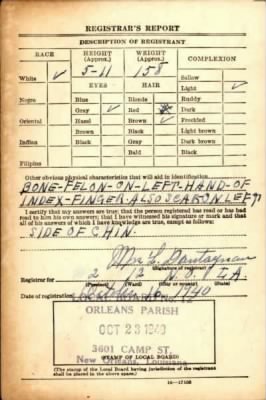 REGISTRAR'S REPORT
DESCRIPTION OF REGISTRANT
RACE HEIGHT (Approx.) WEIGHT (Approx.) COMPLEXION
White ✓ 5-11 158 Sallow
EYES HAIR Light ✓
Negro Blue Blonde Ruddy
Gray ✓ Red Dark
Oriental Hazel Brown ✓ Freckled
Brown Black Light brown
Indian Black Gray Dark brown
Bald Black
Filipino
Other obvious physical characteristics that will aid in identification
BONE-FELON-ON-LEFT-HAND-OF
INDEX-FINGER-ALSO SCAR ON LEFT
I certify that my answers are true; that the person registered has read or has had
read to him his own answers; that I have witnessed his signature or mark and that
all of his answers of which I have knowledge are true, except as follows:
SIDE OF CHIN
Mrs L
(Signature of registrar)
Registrar for 2 12 N.O. LA.
(Precinct) (Ward) (State)
Date of registration 1940
ORLEANS PARISH
OCT 23 1940
3601 CAMP ST.
New Orleans, Louisiana
(STAMP OF LOCAL BOARD)
(The stamp of the Local Board having jurisdiction of the registrant
shall be placed in the above space.)